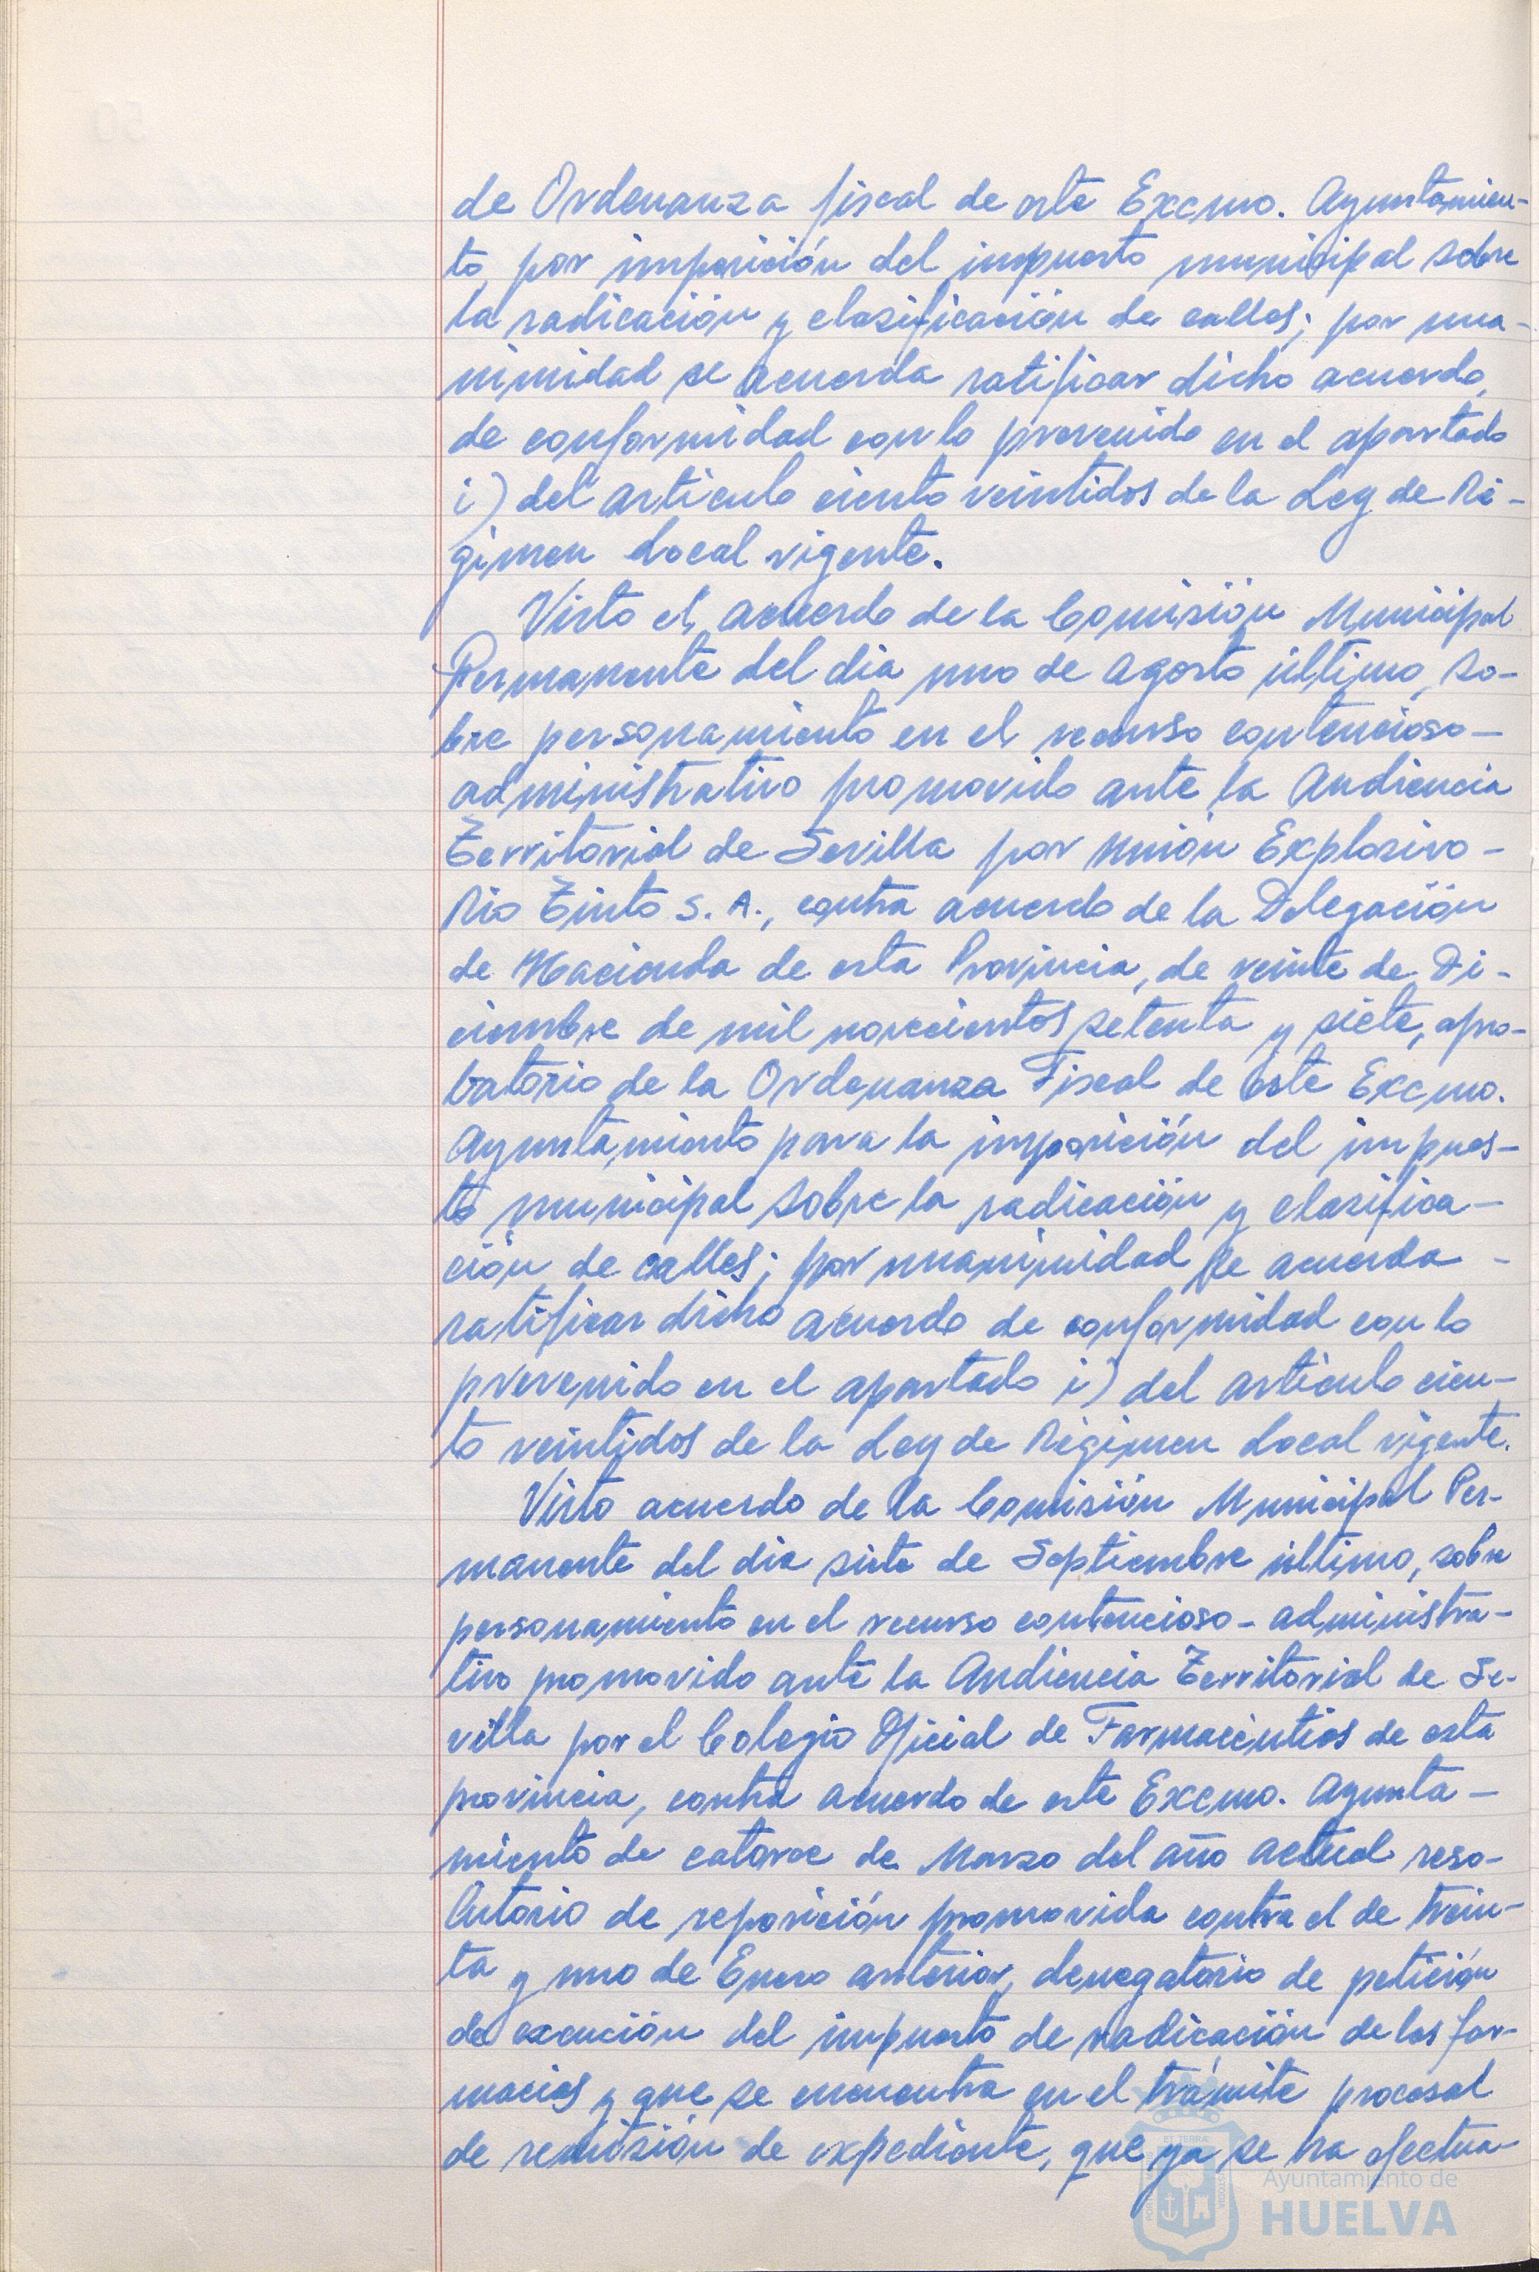 de Ordenanza fiscal de este Excmo. Ayuntamien-
to, por imposición del impuesto municipal sobre
la radicación y clasificación de calles; por una-
nimidad se acuerda ratificar dicho acuerdo,
de conformidad con lo prevenido en el apartado
i) del articulo ciento veintidos de la Ley de Ré-
gimen Local vigente.
Visto el acuerdo de la Comisión Municipal
Permanente del dia uno de Agosto último, so-
bre personamiento en el recurso contencioso-
administrativo promovido ante la Audiencia
Territorial de Sevilla por Unión Explosivo-
Rio Tinto S. A., contra acuerdo de la Delegación
de Hacienda de esta Provincia, de veinte de Di-
ciembre de mil novecientos setenta y siete, apro-
batorio de la Ordenanza Fiscal de este Excmo.
Ayuntamiento para la imposición del impues-
to municipal sobre la radicación y clasifica-
ción de calles; por unanimidad se acuerda -
ratificar dicho acuerdo de conformidad con lo
prevenido en el apartado i) del articulo cien-
to veintidos de la Ley de Régimen Local vigente.
Visto acuerdo de la Comisión Municipal Per-
manente del dia siete de Septiembre último, sobre
personamiento en el recurso contencioso-administra-
tivo promovido ante la Audiencia Territorial de Se-
villa por el Colegio Oficial de Farmacéuticos de esta
provincia, contra acuerdo de este Excmo. Ayunta-
miento de catorce de Marzo del año actual reso-
lutorio de reposición promovida contra el de trein-
ta y uno de Enero anterior, denegatorio de petición
de exención del impuesto de radicación de las far-
macias y que se encuentra en el trámite procesal
de remisión de expediente, que ya se ha efectua-
Ayuntamiento de
HUELVA